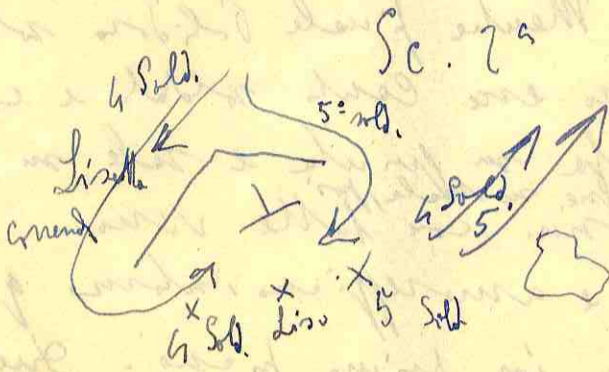 Sc. 7ª
4 Sold.
5° sold.
Lisetta
corrend
4 Sold.
5.
4 Sold. Lise 5 Sold.